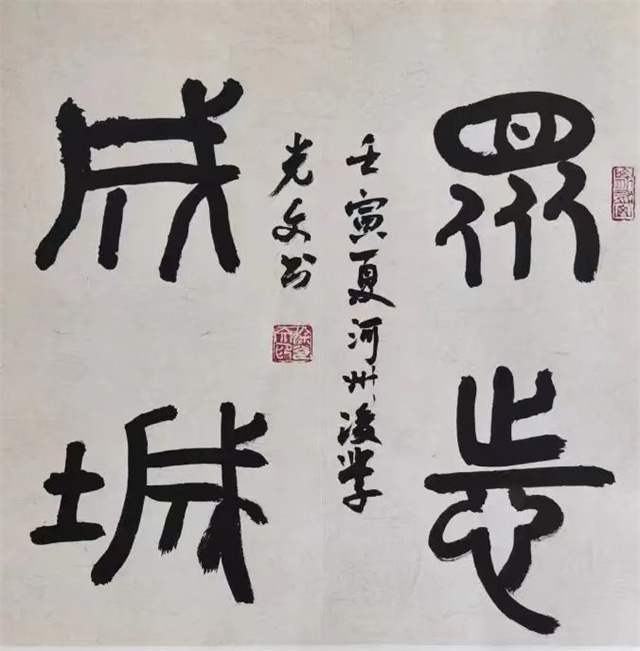 眾志
成城
壬寅夏河州後学
光文书